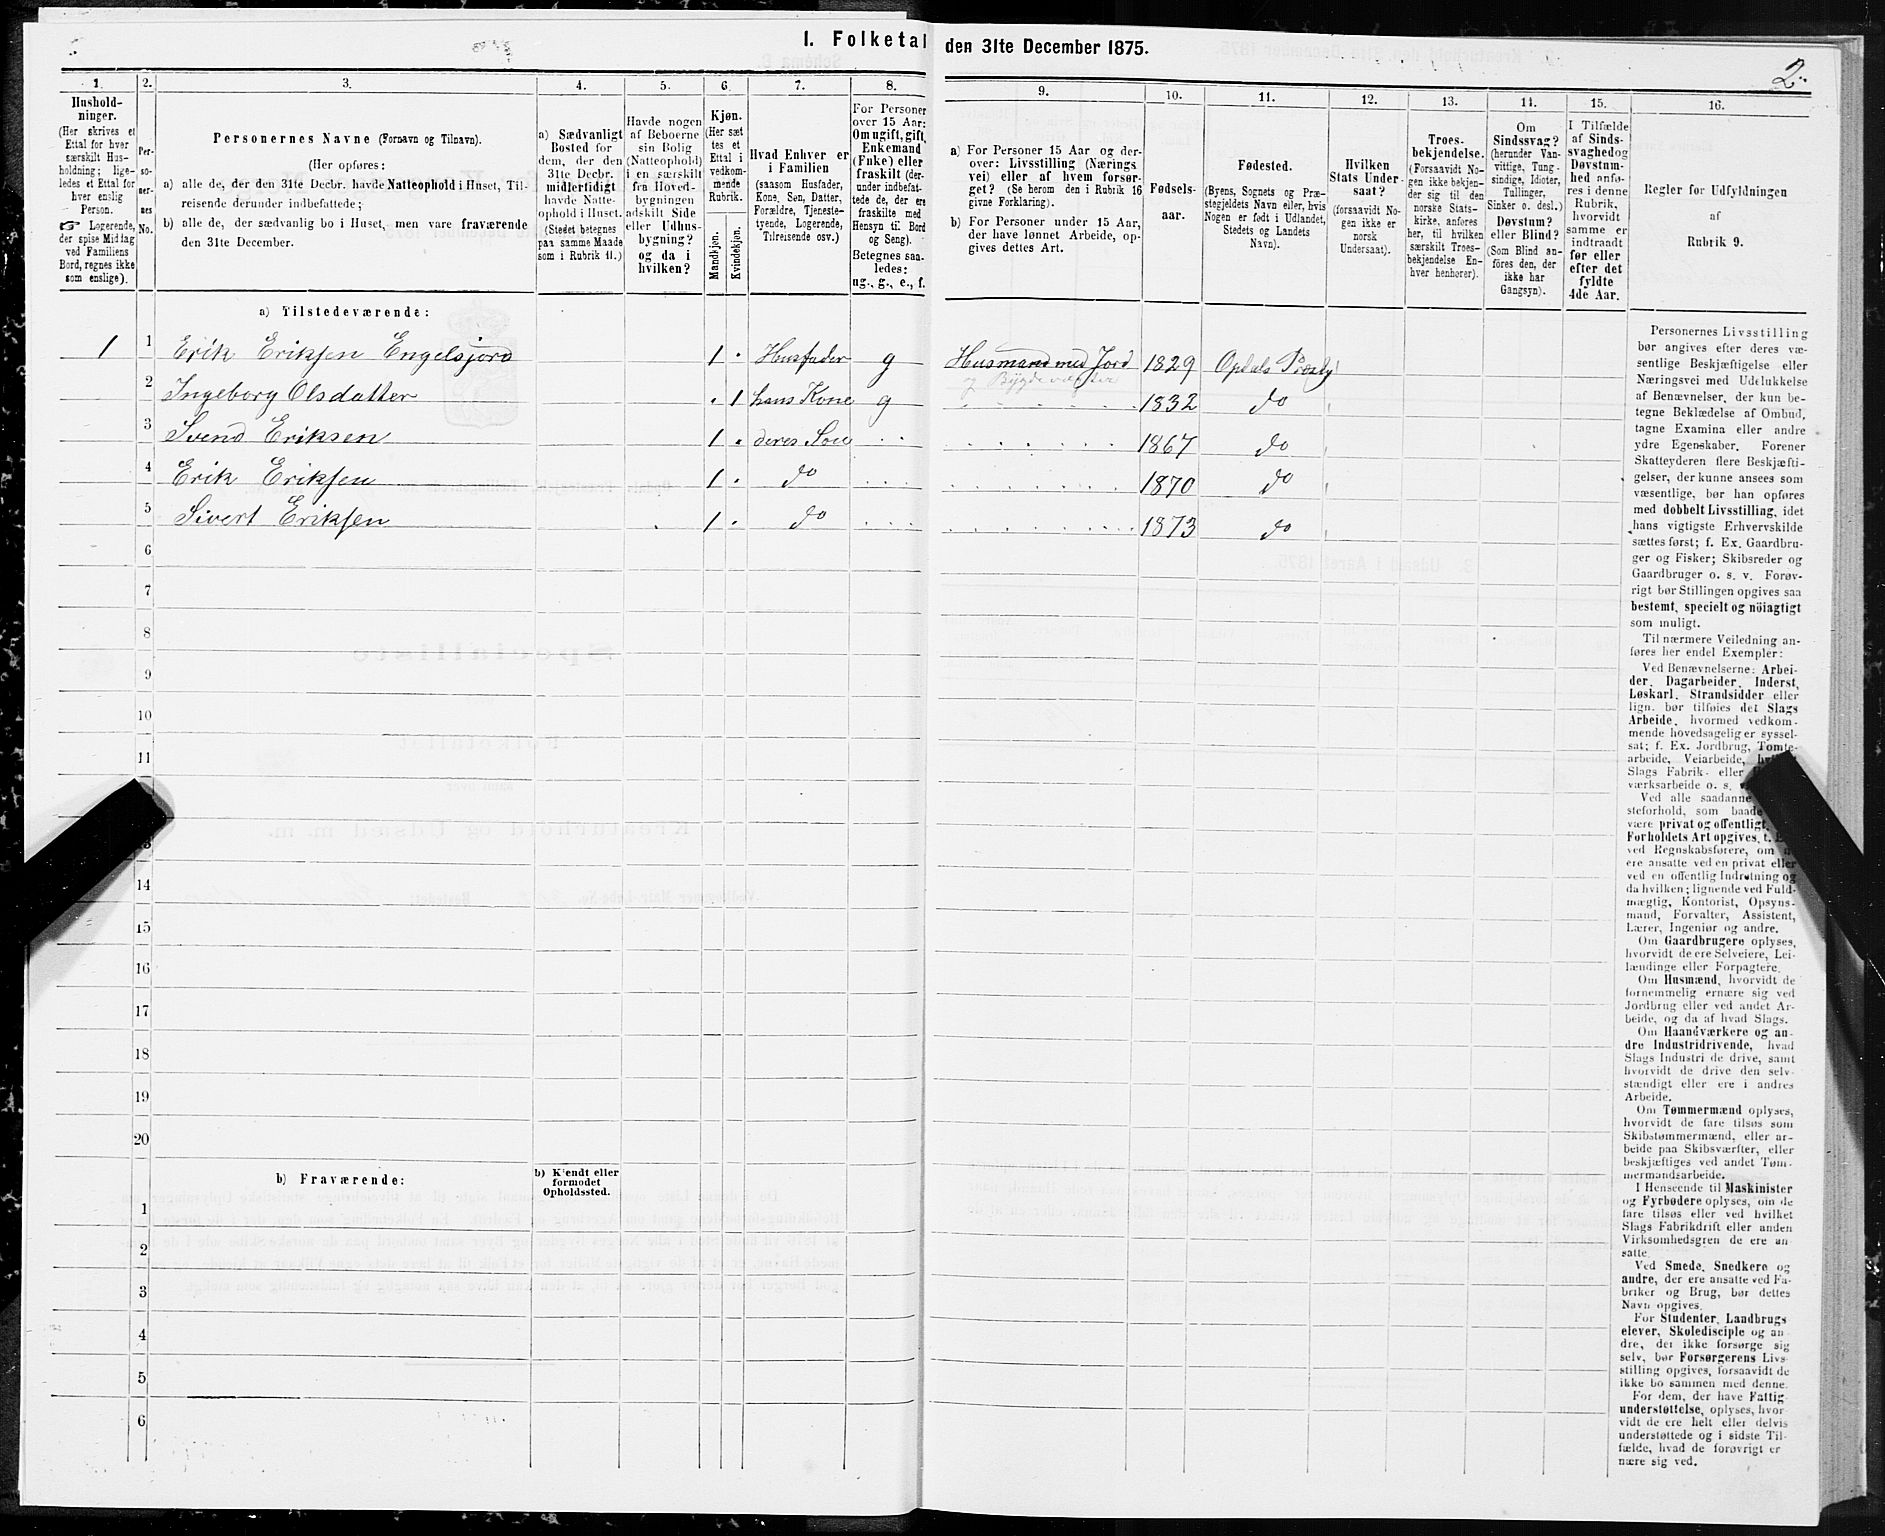 I. Folketal den 31te December 1875.
2.
1.
2.
3.
4.
5.
6.
7.
8.
9.
10.
11.
12.
13.
14.
15.
16.
Hushold-
ninger.
(Her skrives et
Ettal for hver
særskilt Hus-
holdning; lige-
ledes et Ettal for
hver enslig
Person.
☞ Logerende,
der spise Middag
ved Familiens
Bord, regnes ikke
som enslige).
Per-
so-
ner-
nes
No.
Personernes Navne (Fornavn og Tilnavn).
(Her opføres:
a) alle de, der den 31te Decbr. havde Natteophold i Huset, Til-
reisende derunder indbefattede;
b) alle de, der sædvanlig bo i Huset, men vare fraværende
den 31te December.
a) Sædvanligt
Bosted for
dem, der den
31te Decbr.
midlertidigt
havde Natte-
ophold i Huset.
(Stedet betegnes
paa samme Maade
som i Rubrik 11.)
Havde nogen
af Beboerne
sin Bolig
(Natteophold)
i en særskilt
fra Hoved-
bygningen
adskilt Side
eller Udhus-
bygning?
og da i
hvilken?
Kjøn.
(Her sæt-
tes et
Ettal i
vedkom-
mende
Rubrik.
Mandkjøn.
Kvindekjøn.
Hvad Enhver er
i Familien
(saasom Husfader,
Kone, Søn, Datter,
Forældre, Tjeneste-
tyende, Logerende,
Tilreisende osv.)
For Personer
over 15 Aar:
Om ugift, gift,
Enkemand
(Enke) eller
fraskilt (der-
under indbefat-
tede de, der ere
fraskilte med
Hensyn til Bord
og Seng).
Betegnes saa-
ledes:
ug., g., e., f.
a) For Personer 15 Aar og der-
over: Livsstilling (Nærings
vei) eller af hvem forsør-
get? (Se herom den i Rubrik 16
givne Forklaring).
b) For Personer under 15 Aar,
der have lønnet Arbeide, op-
gives dettes Art.
Fødsels-
aar.
Fødested.
(Byens, Sognets og Præ-
stegjeldets Navn eller, hvis
Nogen er født i Udlandet,
Stedets og Landets
Navn).
Hvilken
Stats Under-
saat?
(forsaavidt No-
gen ikke er
norsk
Undersaat).
Troes-
bekjendelse.
(Forsaavidt No-
gen ikke bekjen-
der sig til den
norske Stats-
kirke, anføres
her, til hvilken
særskilt Troes-
bekjendelse En-
hver henhører).
Om
Sindssvag?
(herunder Van-
vittige, Tung-
sindige, Idioter,
Tullinger,
Sinker o. desl.)
Døvstum?
eller Blind?
(Som Blind an-
føres den, der
ikke har
Gangsyn).
I Tilfælde
af Sinds-
svaghed og
Døvstum-
hed anfø-
res i denne
Rubrik,
hvorvidt
samme er
indtraadt
før eller
efter det
fyldte
4de Aar.
Regler for Udfyldningen
af
Rubrik 9.
a) Tilstedeværende:
1 1 Erik Eriksen Engelsjord 1 Husfader g Husmand med Jord 1829 Opdals Præstg
2 Ingeborg Olsdatter 1 hans Kone g 1832 do
3 Svend Eriksen 1 deres Søn 1867 do
4 Erik Eriksen 1 do 1870 do
5 Sivert Eriksen 1 do 1873 do
6
7
8
9
10
11
14
15
16
17
18
19
20
b) Fraværende:
b) Kjendt eller
formodet
Opholdssted.
1
2
3
4
5
6
Personernes Livsstilling
bør angives efter deres væ-
sentlige Beskjæftigelse eller
Næringsvei med Udelukkelse
af Benævnelser, der kun be-
tegne Beklædelse af Ombud,
tagne Examina eller andre
ydre Egenskaber. Forener
Skatteyderen flere Beskjæfti-
gelser, der kunne ansees som
væsentlige, bør han opføres
med dobbelt Livsstilling, idet
hans vigtigste Erhvervskilde
sættes først; f. Ex. Gaardbru-
ger og Fisker; Skibsreder og
Gaardbruger o. s. v. Forøv-
rigt bør Stillingen opgives saa
bestemt, specielt og nöiagtigt
som muligt.
Til nærmere Veiledning an-
føres her endel Exempler:
Ved Benævnelserne: Arbei-
der, Dagarbeider, Inderst,
Løskarl, Strandsidder eller
lign. bør tilføies det Slags
Arbeide, hvormed vedkom-
mende hovedsagelig er syssel-
sat; f. Ex. Jordbrug, Tomte-
arbeide, Veiarbeide,
Slags Fabrik- eller
værksarbeide o. s.
Ved alle saadanne
steforhold, som baade
være privat og offentligt,
Forholdets Art opgives, t.
ved Regnskabsførere, om
ere ansatte ved en privat eller
ved en offentlig Indretning og
da hvilken; lignende ved Fuld-
mægtig, Kontorist, Opsyns-
mand, Forvalter, Assistent,
Lærer, Ingeniør og andre.
Om Gaardbrugere oplyses,
hvorvidt de ere Selveiere, Lei-
lændinge eller Forpagtere.
Om Husmænd, hvorvidt de
fornemmelig ernære sig ved
Jordbrug eller ved andet Ar-
beide, og da af hvad Slags.
Om Haandværkere og an-
dre Industridrivende, hvad
Slags Industri de drive, samt
hvorvidt de drive den selv-
stændigt eller ere i andres
Arbeide.
Om Tømmermænd oplyses,
hvorvidt de fare tilsøs som
Skibstømmermænd, eller ar-
beide paa Skibsværfter, eller
beskjæftiges ved andet Tøm-
mermandsarbeide.
I Henseende til Maskinister
og Fyrbødere oplyses, om de
fare tilsøs eller ved hvilket
Slags Fabrikdrift eller anden
Virksomhedsgren de ere an-
satte.
Ved Smede, Snedkere og
andre, der ere ansatte ved Fa-
briker og Brug, bør dettes
Navn opgives.
For Studenter, Landbrugs
elever, Skoledisciple og an-
dre, der ikke forsørge sig
selv, bør Forsørgerens Livs-
stilling opgives, forsaavidt de
ikke bo sammen med denne.
For dem, der have Fattig-
understøttelse, oplyses, hvor-
vidt de ere helt eller delvis
understøttede og i sidste Til-
fælde, hvad de forøvrigt er
nære sig ved.